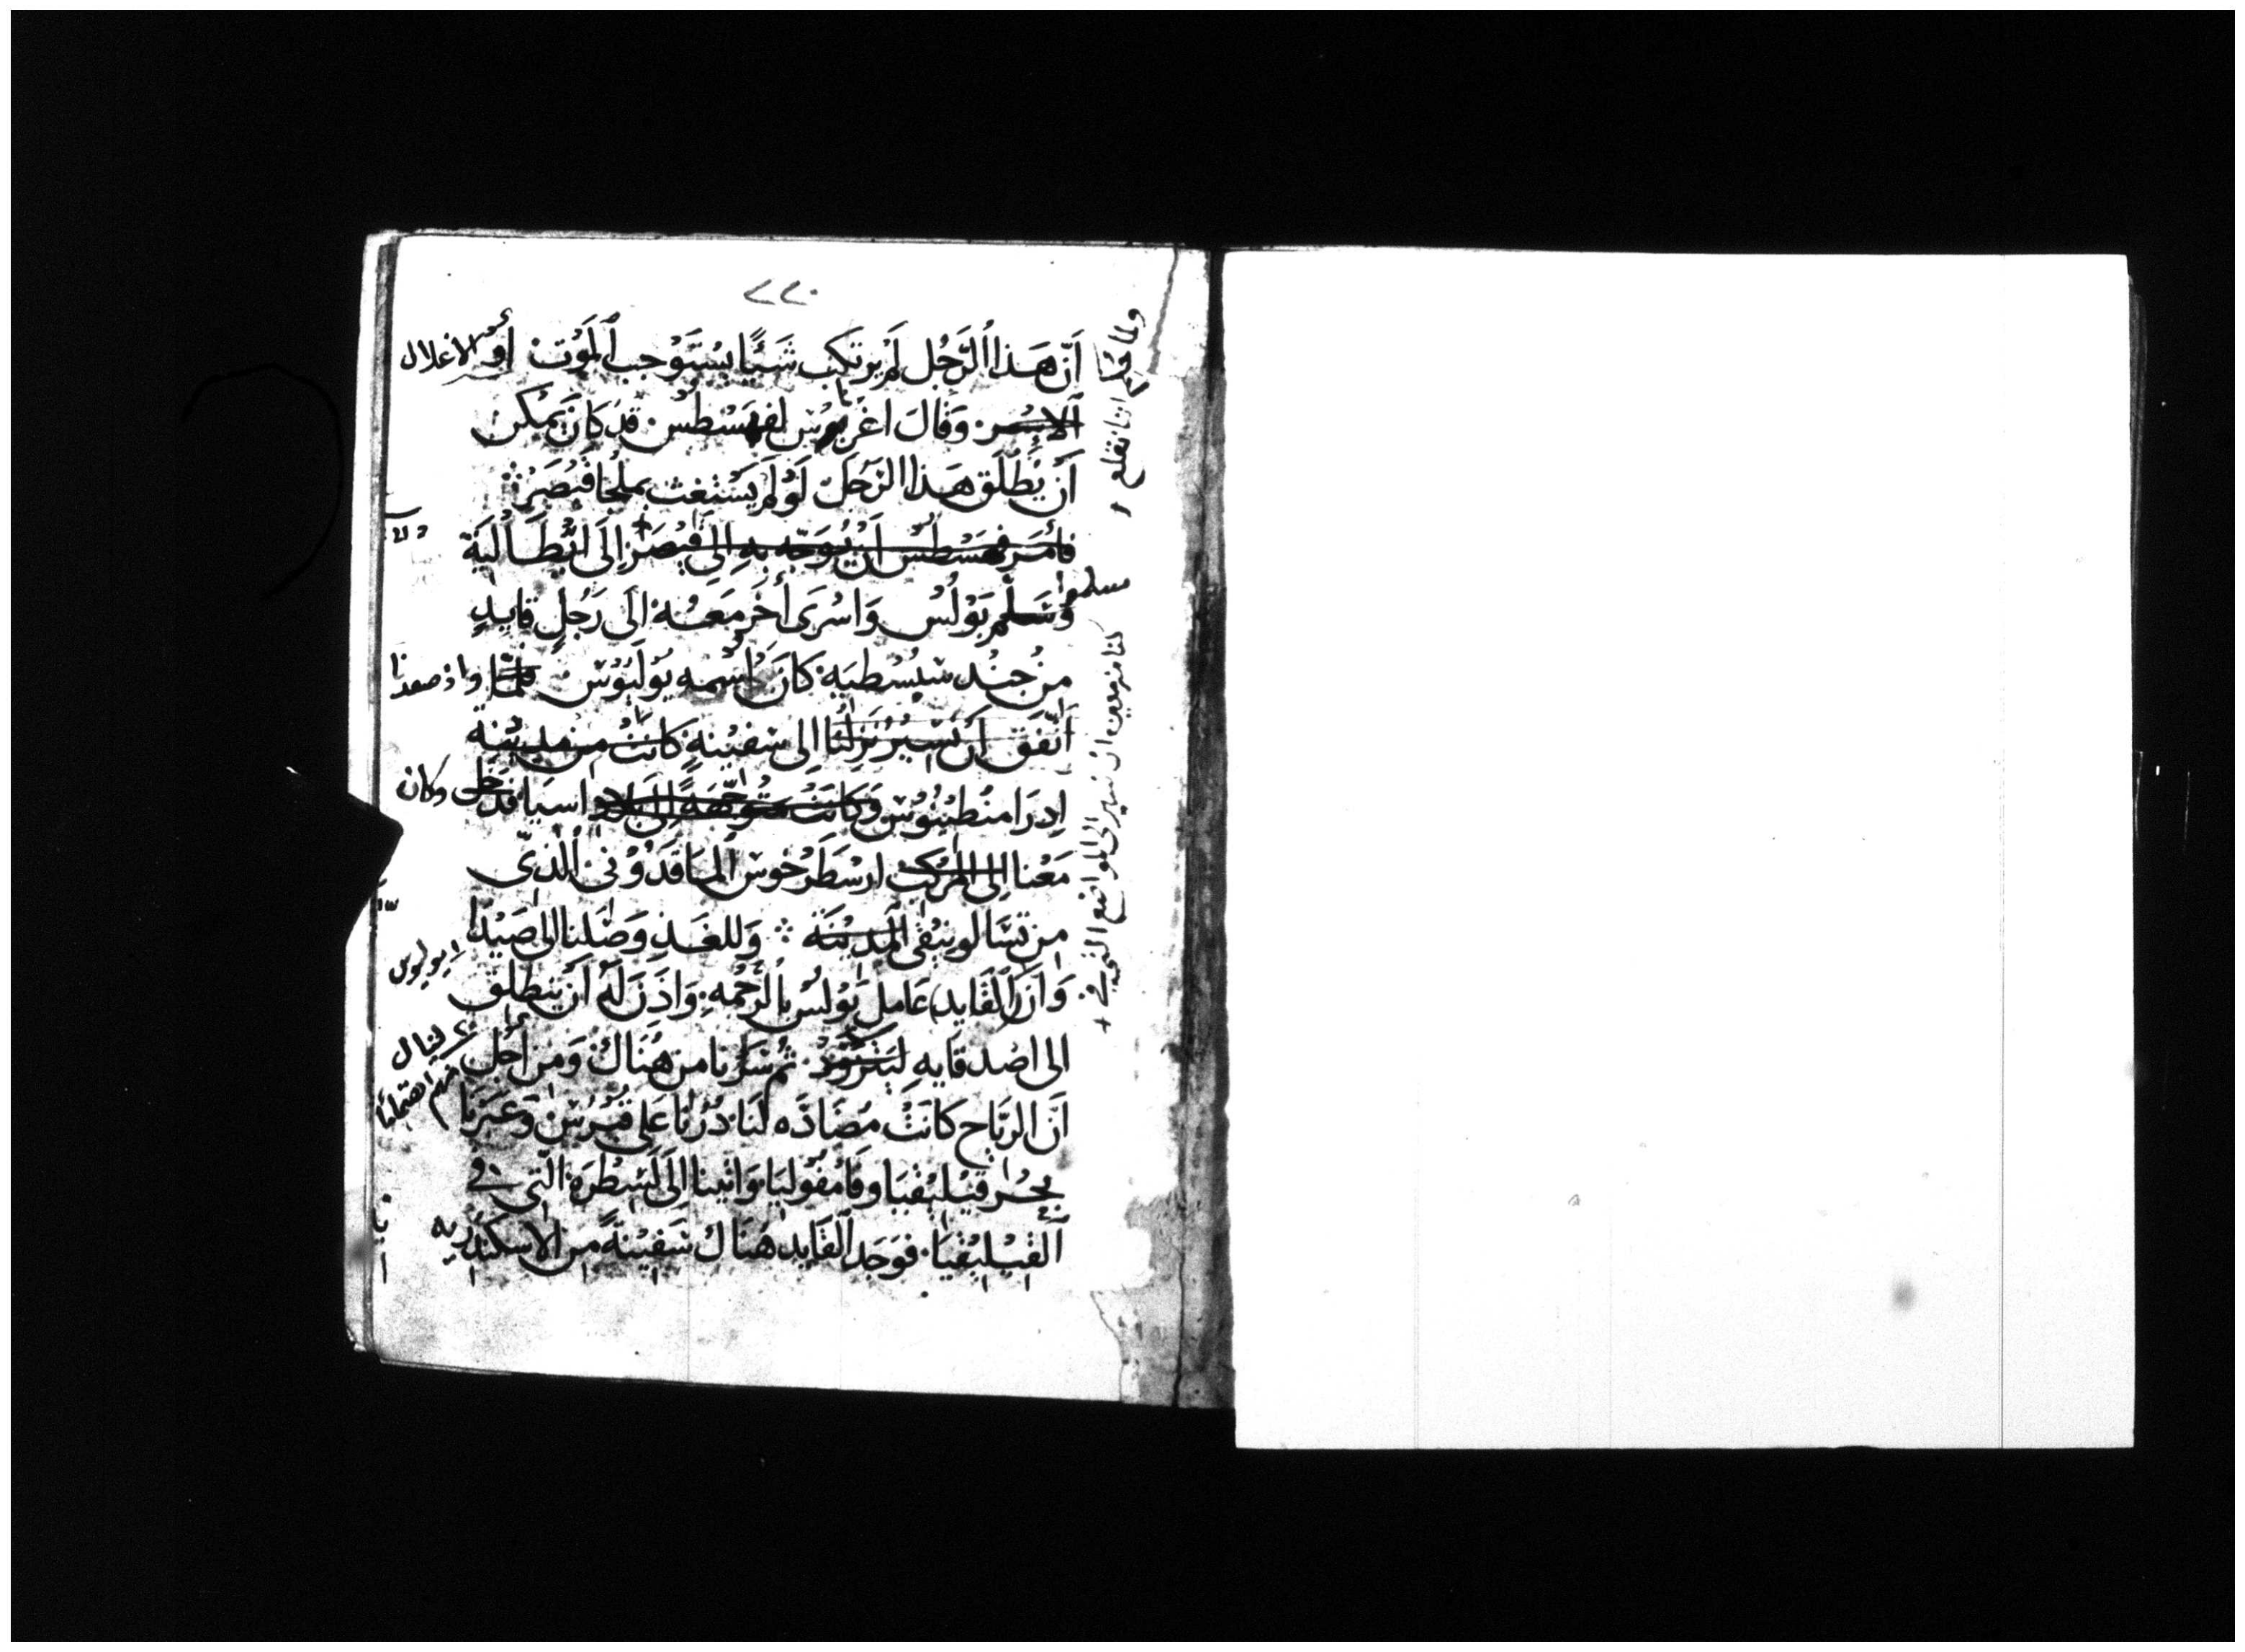 ٢٢٠
أَنّ هَذا الرَّجُل لَمْ يرتكب شَئًا يسْتَوْجب الْمَوْت أو الاغلال
الاسْر. وَقَالَ اغريبوس لفهسْطس قد كَانَ يَمْكن
أَنْ يُطْلَق هَذا الرَجُل لَوْ لَمْ يَسْتغث بملجا قَيْصَر
فأَمَر فهسْطس أَنْ يُوَجّه به إلى قيْصَر إلى انْطَالْيَة
وسَلّم بَوْلُسْ وَاسْرَى أُخَر مَعَهُ إلَى رَجُلٍ قايدٍ
من جُنْد سبسْطيه كَانَ اسْمه يُوْلْيُوْس فلمّا واذ صعدنا
اتّفَق أَنْ نَسِيْر نَزلْنَا الى سَفِيْنهٍ كَانَتْ من مديْنه
ادرَامنْطيْنُوْس وَكانَتْ مُتَوجّهَةً إلَى بلاد اسيَا قد دخل وكان
مَعْنا إلى المركب ارسْطَرْخوس المَاقَدُوْنى الّذى
من تسَّالونيْقى الْمَديْنَة ∴ وَللغَد وَصَلنا الى صَيْدَا
وَأَنّ الْقَايد عَامل بَوْلُسْ بالرّحْمه وَاذَن لَهُ أَنْ ينطلق يوليوس
الى اصْدقايه ليتزوّد ثُم سرْنا من هُنَاك وَمن أَجْل لينال
أَنّ الريَاح كَانَتْ مُضَادَّه لَنَا دُرْنَا عَلى قُبْرُس وَعَبَرْنا
بحْر قيْليْقيَا وفَامْفُوليَا وَاتينا إلَى لَسْطَرَة الّتى في
الْقيْليْقيَا. فَوَجَد القَايد هُنَاك سَفيْنَةً من الاسْكنْدَريه
ولما حكم اننا نقلع
سلموا
كنا مزمعين ان نسير الى المواضع التي في